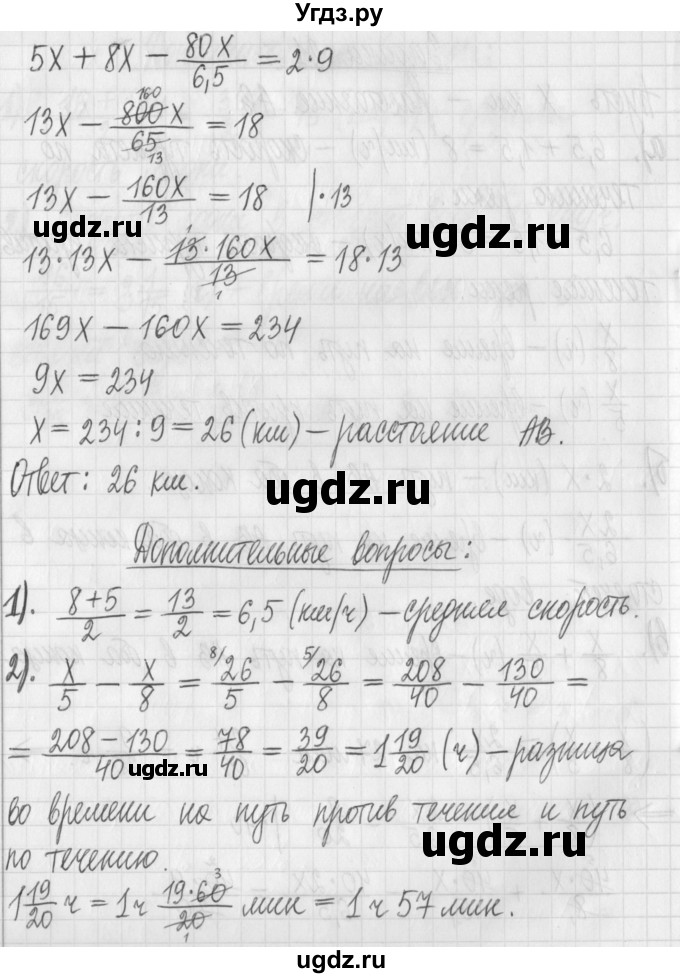 Угдз.ру
5x + 8x − 80x/6,5 = 2·9
13x − 800x/65 = 18
160
13
13x − 160x/13 = 18 |·13
ugdz.ru
ugdz.ru
13·13x − 13·160x/13 = 18·13
1
1
169x − 160x = 234
9x = 234
x = 234 : 9 = 26 (км) – расстояние AB.
Ответ: 26 км.
ugdz.ru
Дополнительные вопросы:
1). 8+5/2 = 13/2 = 6,5 (км/ч) – средняя скорость.
2). x/5 − x/8 = 8/26/5 − 5/26/8 = 208/40 − 130/40 =
= 208−130/40 = 78/40 = 39/20 = 1 19/20 (ч) – разница
ugdz.ru
во времени на путь против течения и путь
по течению.
ugdz.ru
1 19/20 ч = 1ч 19·60/20 мин = 1 ч 57 мин.
3
1
ugdz.ru